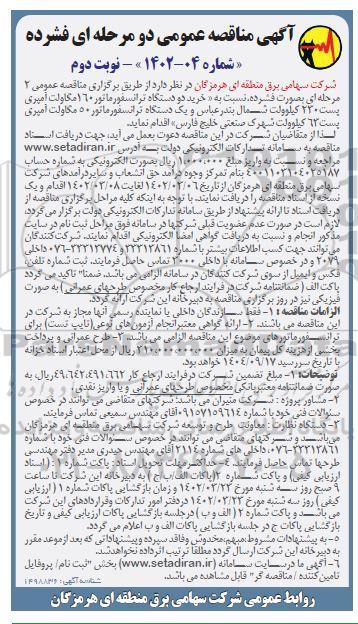 آگهی مناقصه عمومی دو مرحله ای فشرده
« شماره ۰۴-۱۴۰۲ » - نوبت دوم
شرکت سهامی برق منطقه ای هرمزگان در نظر دارد از طریق برگزاری مناقصه عمومی ۲
مرحله ای بصورت فشرده،نسبت به « خرید دو دستگاه ترانسفورماتور ۱۶۰مگاولت آمپری
پست ۲۳۰ کیلوولت شمال بندرعباس و یک دستگاه ترانسفورماتور ۵۰ مگاولت آمپری
پست ۶۳ کیلوولت شهرک صنعتی خلیج فارس» اقدام نماید.
لـذا از متقاضیان شرکت در این مناقصه دعوت بعمل می آید، جهت دریافت اسناد
مناقصه به سامانه تدارکات الکترونیکی دولت به آدرس www.setadiran.ir
مراجعه و نسبت به واریز مبلغ ۱،۵۰۰،۰۰۰ ریال بصورت الکترونیکی به شماره حساب
بنام تمرکز وجوه درآمد حق انشعاب و سایر درآمدهای شرکت
سهامی برق منطقه ای هرمزگان از تاریخ ۱۴۰۲/۰۲/۰۶ لغایت ۱۴۰۲/۰۲/۰۸ اقدام و یک
نسخه از اسناد مناقصه را دریافت نمایند. با توجه به اینکه کلیه مراحل برگزاری مناقصه از
دریافت اسناد تا ارائه پیشنهاد از طریق سامانه تدارکات الکترونیکی دولت برگزار می گردد،
لازم است در صورت عدم عضویت قبلی شرکتها در سامانه فوق مراحل ثبت نام در سایت
مذکور انجام و نسبت به دریافت گواهی امضا الکترونیکی اقدام نمایند. شرکت کنندگان
می توانند جهت کسب اطلاعات بیشتر با شماره ۳۳۳۱۲۸۶۱-۰۷۶ و داخلی
۲۰۷۹ و در خصوص سامانه با داخلی ۲۰۰۰ تماس حاصل فرمایند. ثبت شماره تلفن،
فکس و ایمیل از سوی شرکت کنندگان در سامانه الزامی می باشد. ضمنا" تاکید می گردد
پاکت الف (ضمانتنامه شرکت در فرایند ارجاع کار مخصوص طرحهای عمرانی) به صورت
فیزیکی نیز در روز برگزاری مناقصه به دبیرخانه این شرکت ارائه گردد.
الزامات مناقصه : ۱- فقط سازندگان داخلی یا نماینده رسمی آنها مجاز به شرکت در
این مناقصه می باشند. ۲- ارائه گواهی معتبر انجام آزمون های نوعی(تایپ تست) برای
ترانسفورماتورهای موضوع این مناقصه الزامی می باشد. ۳- طرح عمرانی و پرداخت
بخشی از هزینه کل پیمان به میزان ریال از محل اعتبار اسناد خزانه
با تاریخ سررسید ۱۴۰۴/۰۹/۱۷ خواهد بود.
توضیحات: ۱- مبلغ تضمین شرکت در فرایند ارجاع کار ۴۹،۶۴۲،۴۹۱،۶۶۲ ریال، به
صورت ضمانتنامه معتبر بانکی مخصوص طرحهای عمرانی و یا واریز نقدی؛
۲- مشاور پروژه : شرکت منیران می باشد؛ شرکتهای متقاضی می توانند در خصوص
سوالات فنی خود با شماره ۰۹۱۵۷۱۵۹۶۱۴ آقای مهندس سمیعی تماس فرمایند.
۳- دستگاه نظارت : معاونت طرح و توسعه شرکت سهامی برق منطقه ای هرمزگان
می باشد و شرکتهای متقاضی می توانند در خصوص سوالات فنی خود با شماره
۳۳۳۱۲۸۶۱-۰۷۶ داخلی های شماره ۲۱۱۴ آقای مهندس حیدری مدیر دفتر مهندسی
طرحها تماس حاصل فرمایند. ۴- حداکثر مهلت تحویل اسناد : پاکت شماره ۲ (اسناد
ارزیابی کیفی) و پاکت شماره ۱ (پاکات الف/ب/ج) به دبیرخانه این شرکت تا ساعت
۹ صبح روز سه شنبه مورخ ۱۴۰۲/۰۲/۲۳ و زمان بازگشایی پاکات شماره ۱ (ارزیابی
کیفی) روز سه شنبه مورخ ۱۴۰۲/۰۲/۲۳ در دفتر امور تدارکات و قراردادهای این شرکت
و پاکات شماره ۲ (الف و ب) در جلسه بازگشایی پاکات ارزیابی کیفی و تاریخ
بازگشایی پاکات ج در جلسه بازگشایی پاکات الف و ب اعلام می گردد.
۵- به پیشنهادات مشروط،مبهم،مخدوش وفاقد سپرده و پیشنهاداتی که بعد از موعد مقرر
به دبیرخانه این شرکت ارسال گردد مطلقا ترتیب اثر داده نخواهدشد.
۶- آگهی ما درسایت سامانه (www.setadiran.ir) بخش "ثبت نام / پروفایل
تامین کننده / مناقصه گر" قابل مشاهده می باشد. شناسه آگهی: ۱۴۹۸۸۳۶
روابط عمومی شرکت سهامی برق منطقه ای هرمزگان